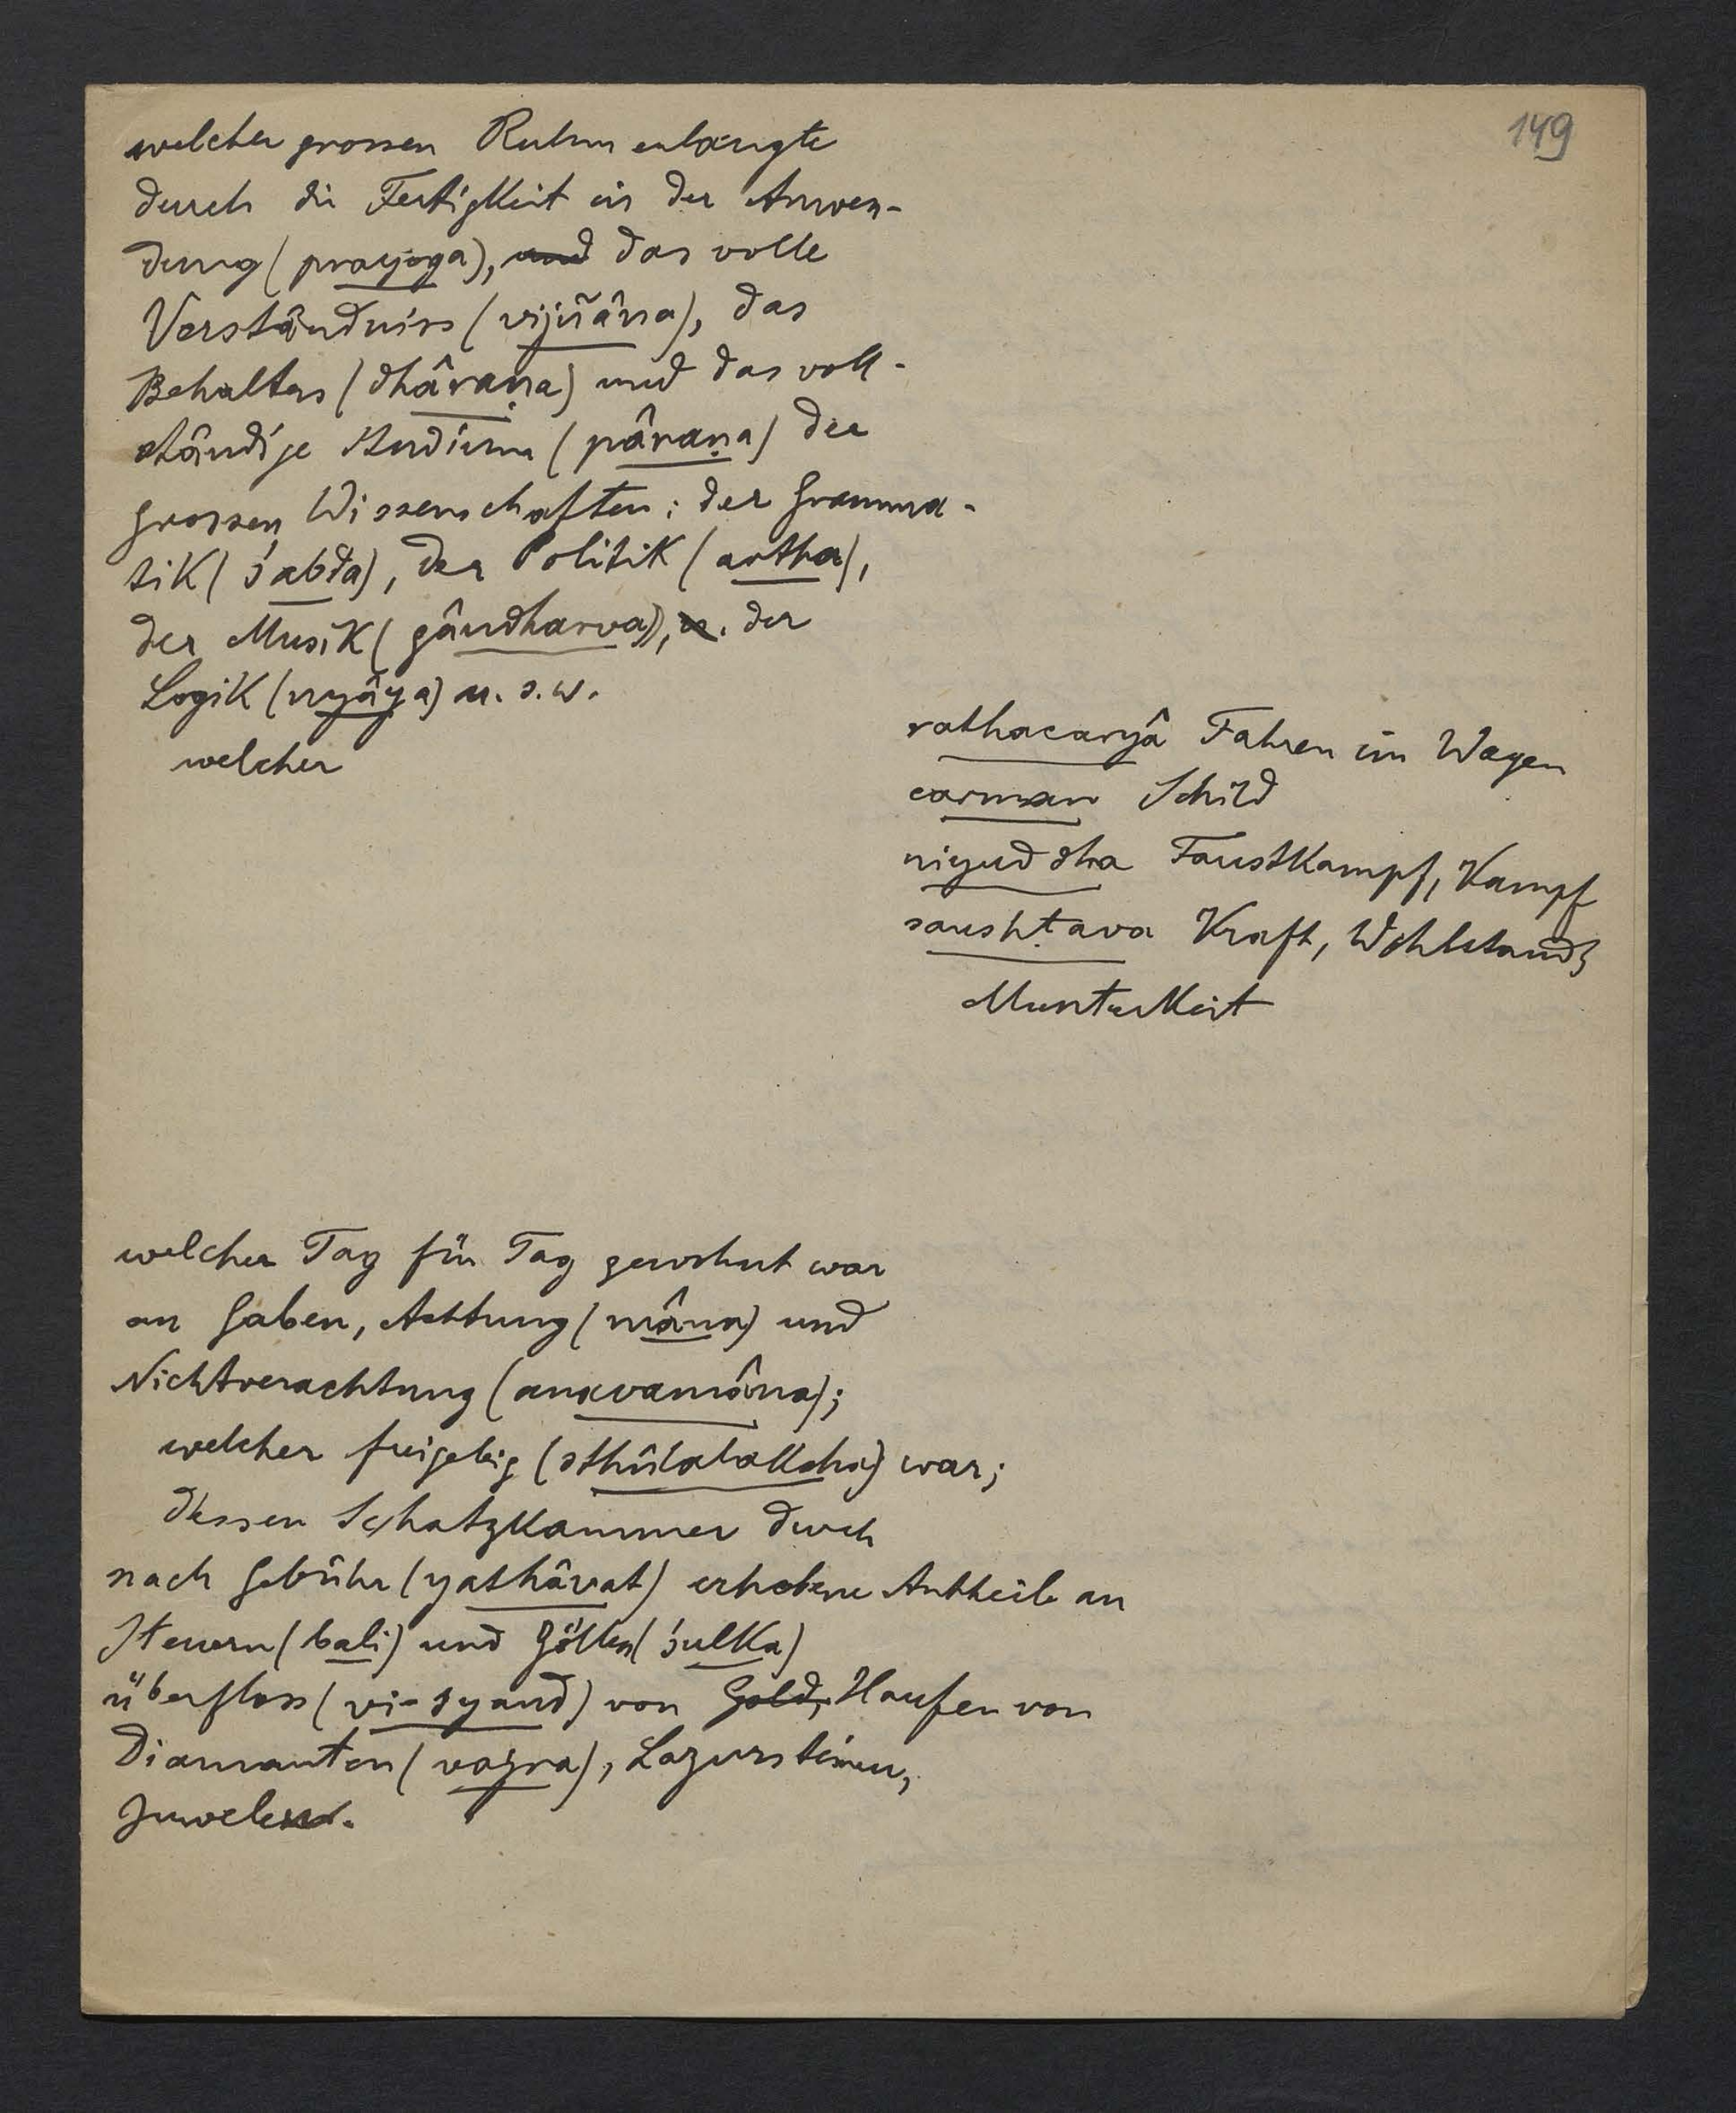 149
welcher grossen Ruhm erlangte
durch die Fertigkeit in der Anwen-
dung (prayoga), und das volle
Verständniss (vijñâna), das
Behalten (dhâraṇa) und das voll-
ständige Studium (pâraṇa) der
grossen Wissenschaften: der Gramma-
tik (śabda), der Politik (artha),
der Musik (gândharva), u. der
Logik (nyâya) u. s. w.
welcher
rathacaryâ Fahren im Wagen
carman Schild
niyuddha Faustkampf, Kampf
saushṭava Kraft, Wohlstand,
Munterkeit
welcher Tag für Tag gewohnt war
an Gaben, Achtung (mâna) und
Nichtverachtung (anavamâna);
welcher freigebig (sthûlalaksha) war;
dessen Schatzkammer durch
nach Gebühr (yathâvat) erhobene Antheile an
Steuern (bali) und Zöllen (śulka)
überfloss (vi-syand) von Gold, Haufen von
Diamanten (vajra), Lazursteinen,
Juwelen.